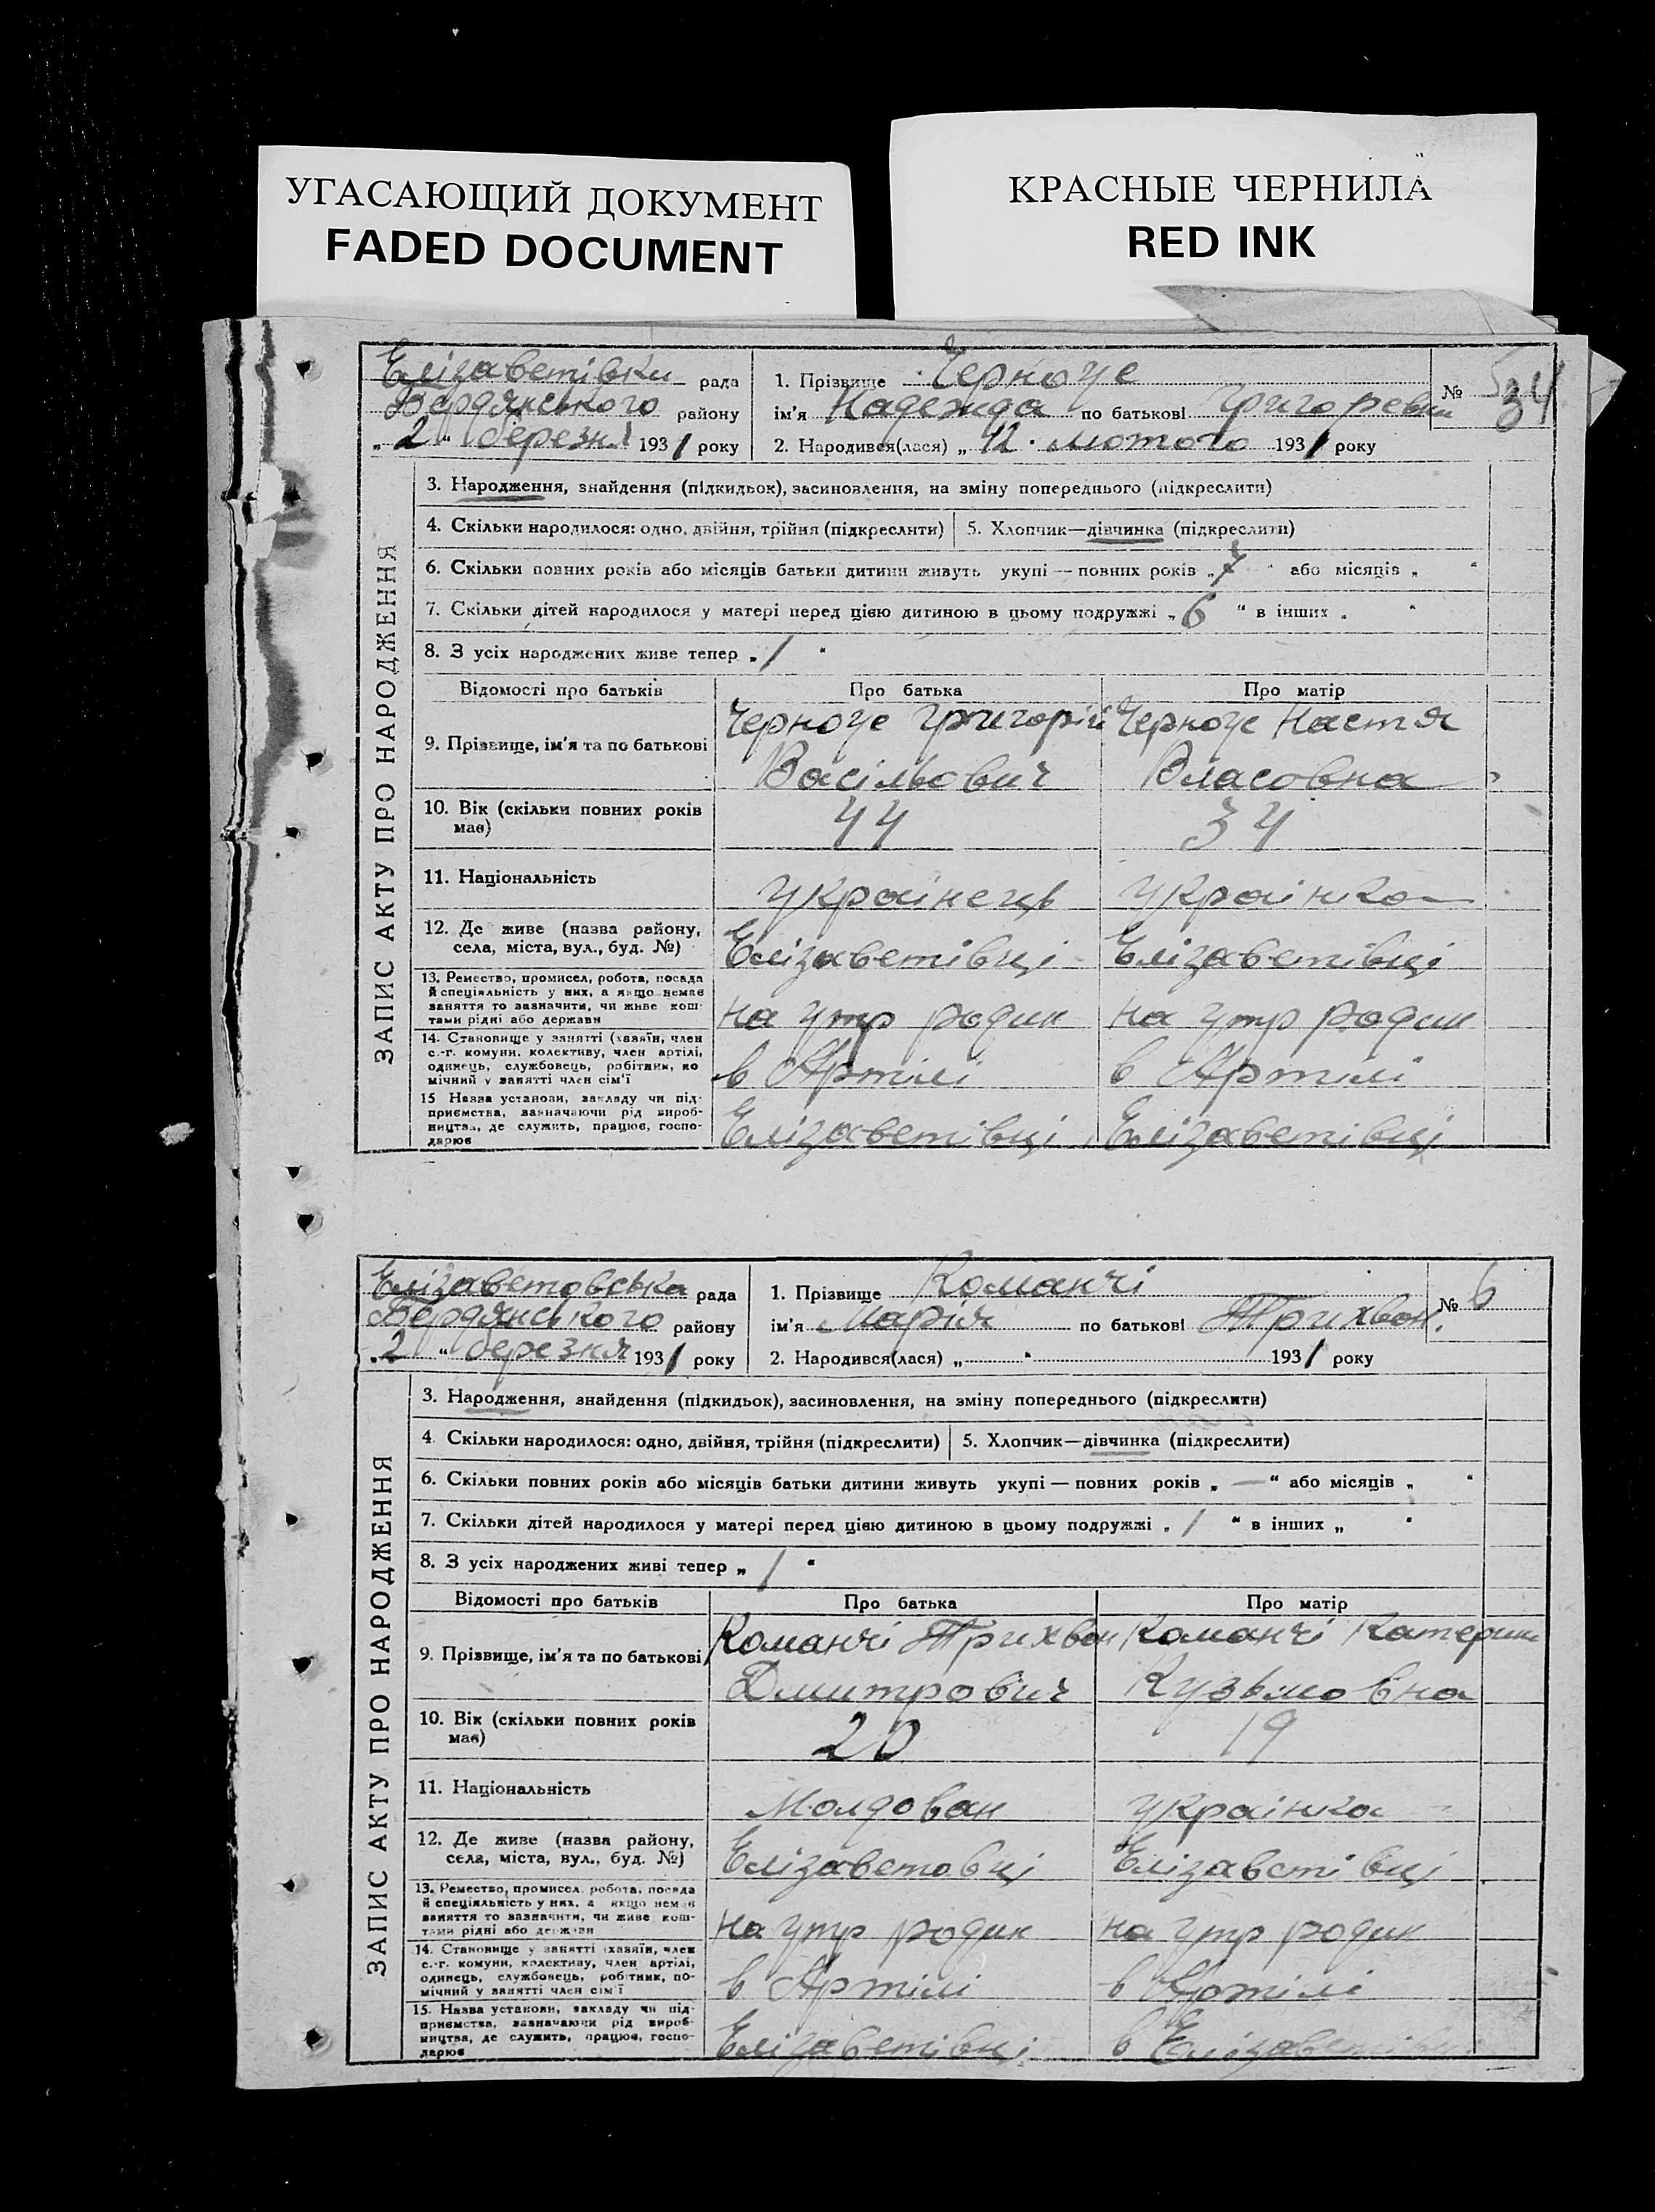 УГАСАЮЩИЙ ДОКУМЕНТ
FADED DOCUMENT
КРАСНЫЕ ЧЕРНИЛА
RED INK
Елізаветівки рада
Бердянського району
„ 2 “ березня 1931 року
1. Прізвище Черноус
ім'я Надежда по батькові Григоревн
2. Народився(лася) „ 12 · лютого 1931 року
№ 34
ЗАПИС АКТУ ПРО НАРОДЖЕННЯ
3. Народження, знайдення (підкидьок), засиновлення, на зміну попереднього (підкреслити)
4. Скільки народилося: одно, двійня, трійня (підкреслити) 5. Хлопчик—дівчинка (підкреслити)
6. Скільки повних років або місяців батьки дитини живуть укупі — повних років „ “ або місяців „ “
7. Скільки дітей народилося у матері перед цією дитиною в цьому подружжі „ 6 “ в інших „ “
8. З усіх народжених живе тепер „ 1 “
Відомості про батьків Про батька Про матір
9. Прізвище, ім'я та по батькові Черноус Григорій Васільович Черноус Настя Власовна
10. Вік (скільки повних років має) 44 34
11. Національність Українець Українка
12. Де живе (назва району, села, міста, вул., буд. №) Елізаветівці Елізаветівці
13. Ремество, промисел, робота, посада й спеціяльність у них, а якщо немає заняття то зазначити, чи живе коштами рідні або держави на утр родин на утр родин
14. Становище у занятті (хазяїн, член с.-г. комуни, колективу, член артілі, одинець, службовець, робітник, помічний у занятті член сім'ї в Артілі в Артілі
15 Назва установи, закладу чи підприємства, зазначаючи рід виробництва, де служить, працює, господарює Елізаветівці Елізаветівці
Елізаветовська рада
Бердянського району
„ 2 “ березня 1931 року
1. Прізвище Команчі
ім'я Марія по батькові Трихвон.
2. Народився(лася) „ “ 1931 року
№ 6
ЗАПИС АКТУ ПРО НАРОДЖЕННЯ
3. Народження, знайдення (підкидьок), засиновлення, на зміну попереднього (підкреслити)
4. Скільки народилося: одно, двійня, трійня (підкреслити) 5. Хлопчик—дівчинка (підкреслити)
6. Скільки повних років або місяців батьки дитини живуть укупі — повних років „ — “ або місяців „ “
7. Скільки дітей народилося у матері перед цією дитиною в цьому подружжі „ 1 “ в інших „ “
8. З усіх народжених живі тепер „ 1 “
Відомості про батьків Про батька Про матір
9. Прізвище, ім'я та по батькові Команчі Трихвон Дмитрович Команчі Катерин Кузьмовна
10. Вік (скільки повних років має) 20 19
11. Національність Молдован Українка
12. Де живе (назва району, села, міста, вул., буд. №) Елізаветовці Елізаветівці
13. Ремество, промисел, робота, посада й спеціяльність у них, а якщо немає заняття то зазначити, чи живе коштами рідні або держави на утр родин на утр родин
14. Становище у занятті (хазяїн, член с.-г. комуни, колективу, член артілі, одинець, службовець, робітник, помічний у занятті член сім'ї в Артілі в Артілі
15. Назва установи, закладу чи підприємства, зазначаючи рід виробництва, де служить, працює, господарює Елізаветівці в Елізаветівці